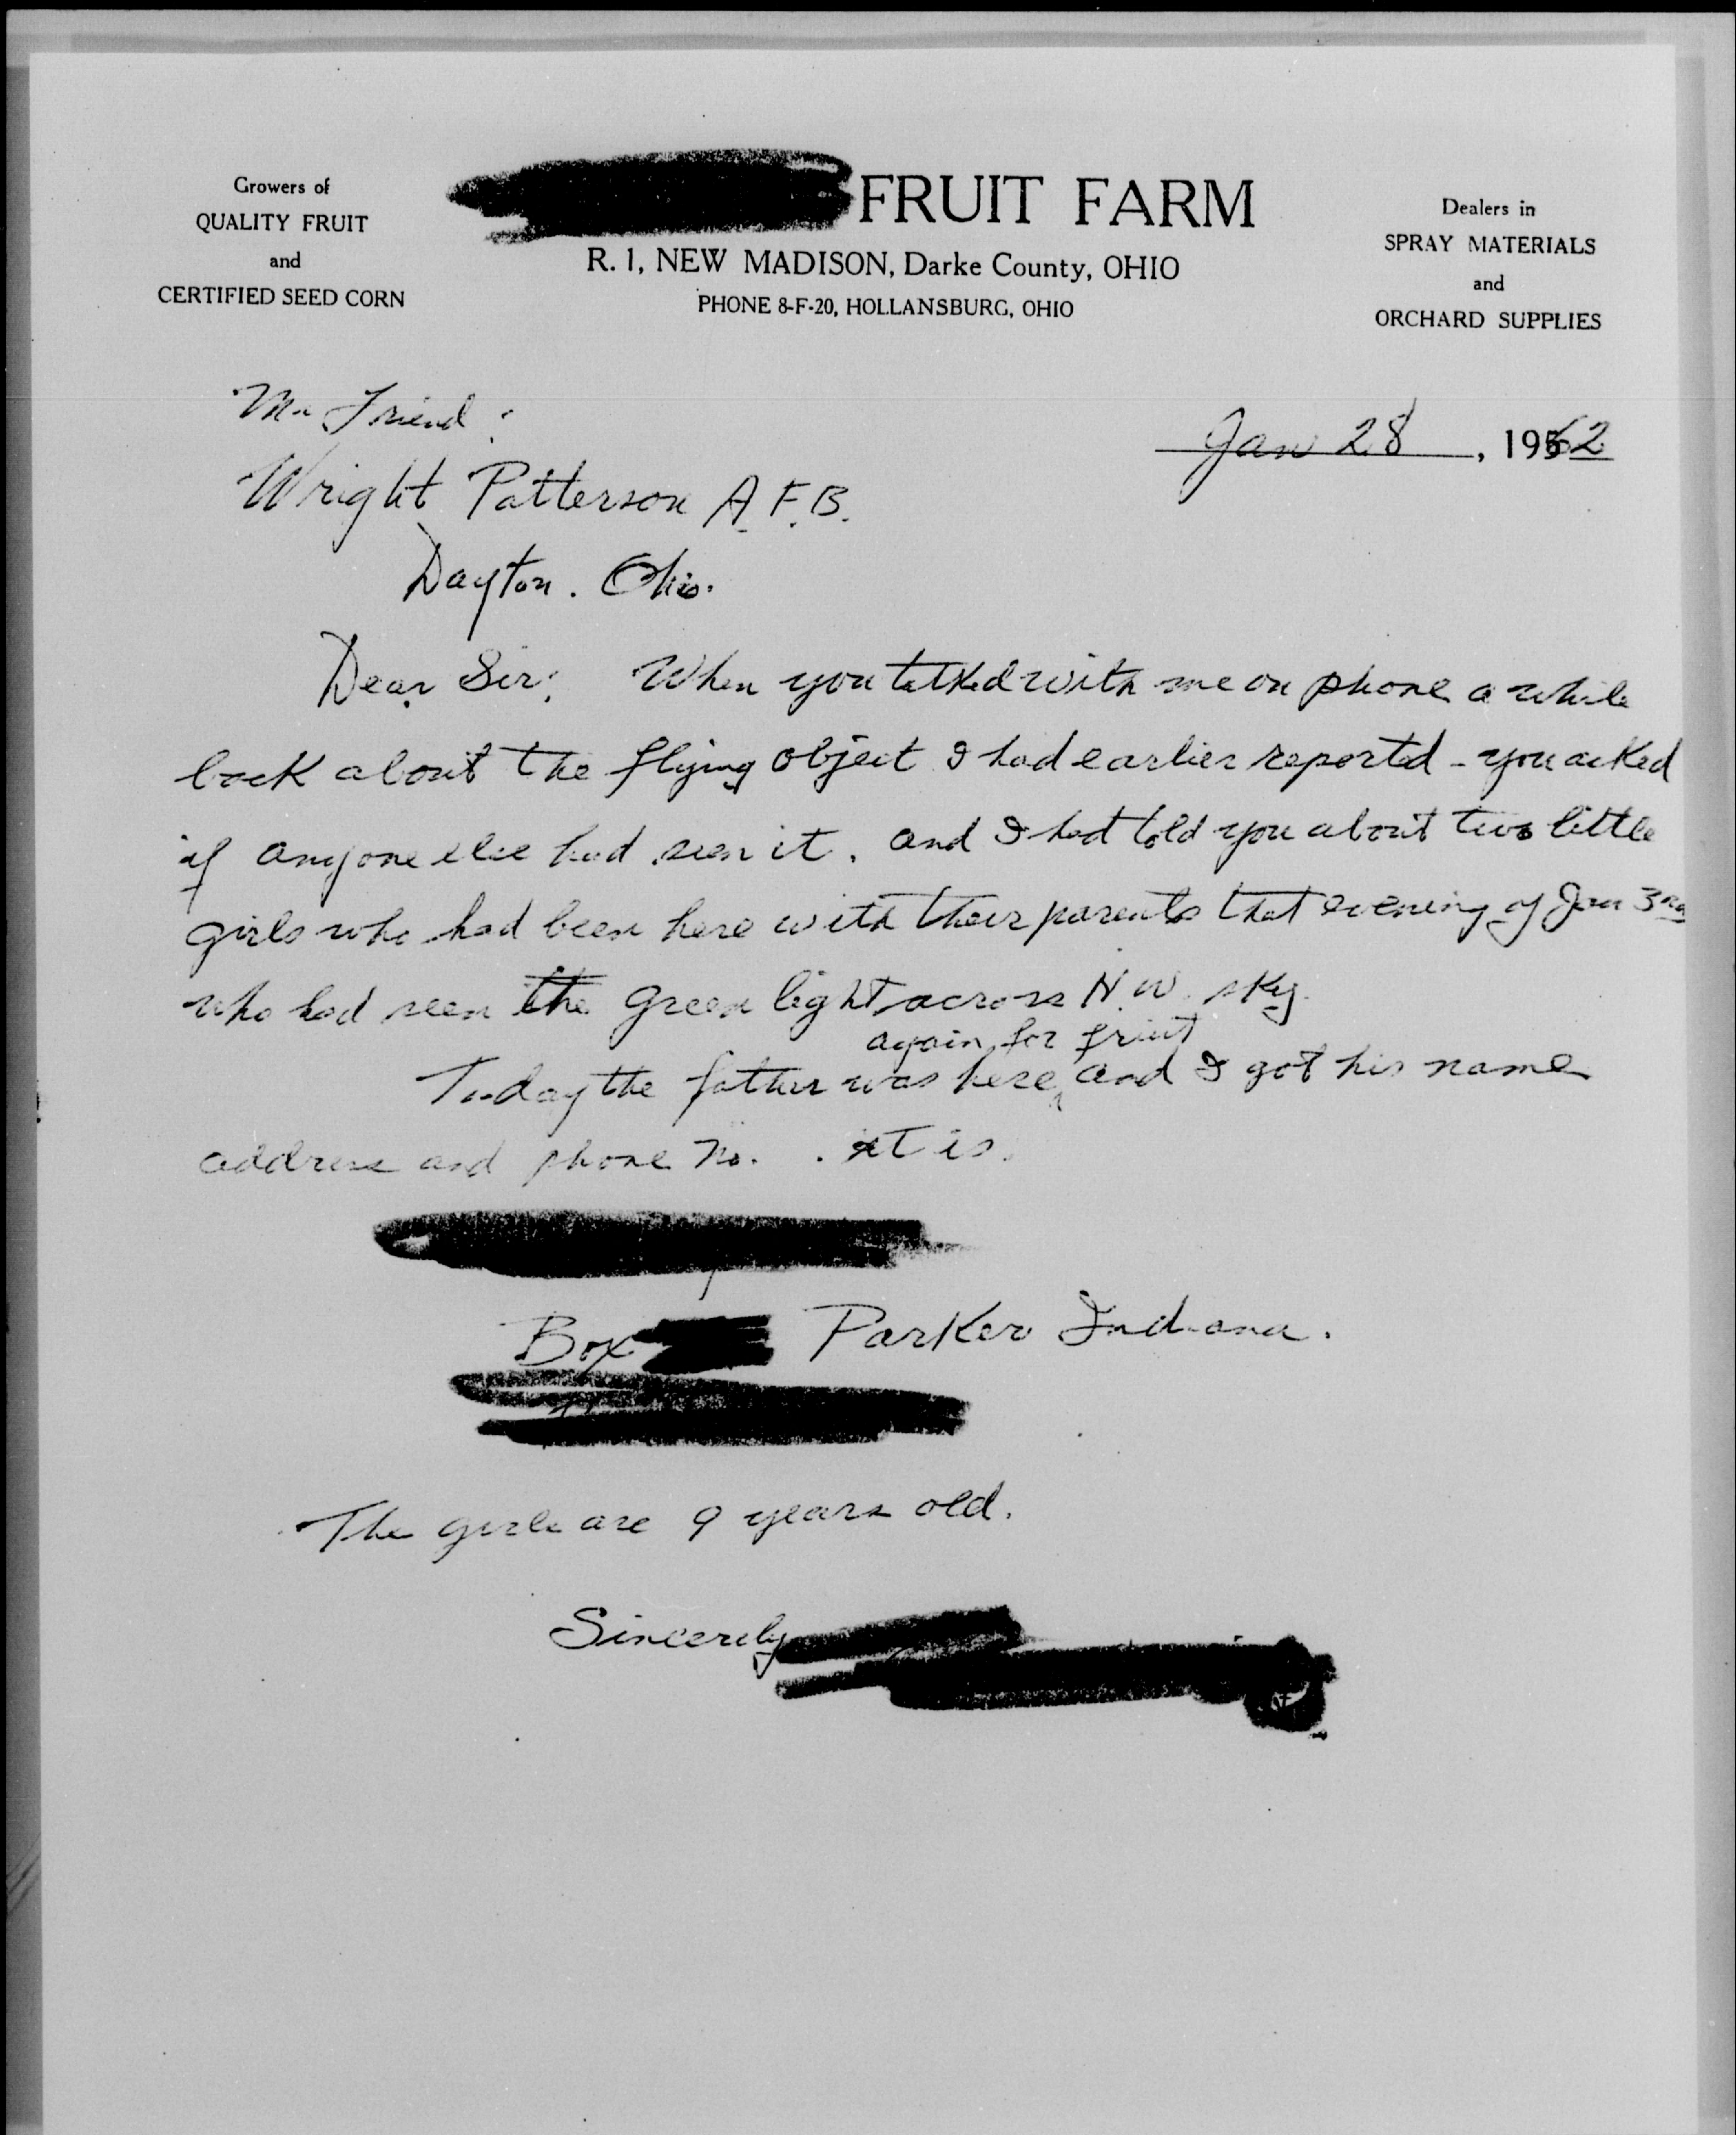 Growers of
QUALITY FRUIT
and
CERTIFIED SEED CORN
FRUIT FARM
R. 1, NEW MADISON, Darke County, OHIO
PHONE 8-F-20, HOLLANSBURG, OHIO
Dealers in
SPRAY MATERIALS
and
ORCHARD SUPPLIES
Mr Friend:
Jan 28, 1962
Wright Patterson A.F.B.
Dayton. Ohio.
Dear Sir: When you talked with me on phone a while
back about the flying object I had earlier reported - you asked
if anyone else had seen it. and I had told you about two little
girls who had been here with their parents that evening of Jan 3rd
who had seen the green light across N.W. sky.
again for fruit
Today the father was here and I got his name
address and phone no. . it is.
Box Parker Indiana.
The girls are 9 years old.
Sincerely